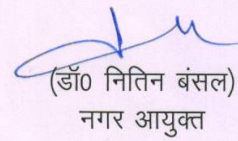 (डॉ0 नितिन बंसल)
नगर आयुक्त